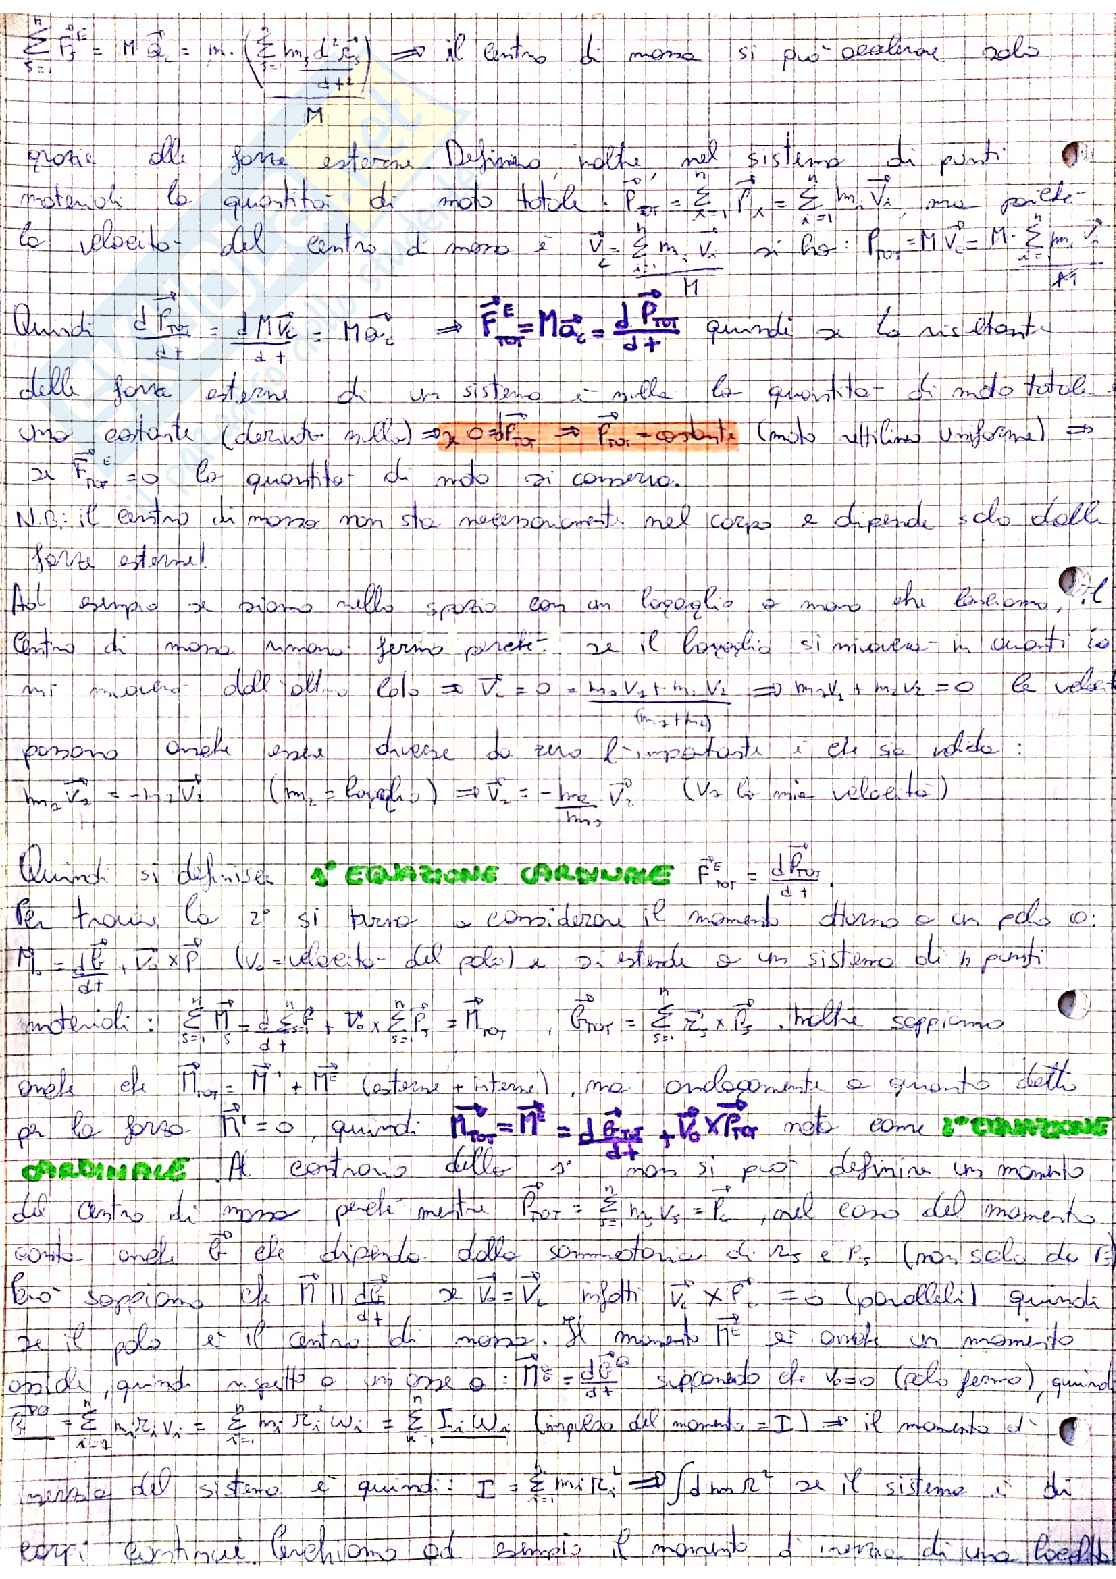 n∑s=1 F⃗sᴱ = M a⃗c = m · (∑ ms d²r⃗s/dt²)/M ⇒ il centro di massa si può accelerare solo
grazie alle forze esterne. Definiamo, inoltre, nel sistema di punti
materiali la quantità di moto totale: P⃗TOT = n∑i=1 P⃗i = n∑i=1 mi V⃗i, ma poichè
la velocità del centro di massa è V⃗c = n∑i=1 mi V⃗i / M si ha: PTOT = M V⃗c = M · n∑i=1 mi V⃗i / M
Quindi dP⃗TOT/dt = dMV⃗c/dt = Ma⃗c ⇒ F⃗ᴱTOT = Ma⃗c = dP⃗TOT/dt quindi se la risultante
delle forze esterne di un sistema è nulla la quantità di moto totale è
una costante (derivata nulla) ⇒ se 0 = dP⃗TOT ⇒ P⃗TOT = costante (moto rettilineo uniforme) ⇒
se F⃗ᴱTOT = 0 la quantità di moto si conserva.
N.B.: il centro di massa non sta necessariamente nel corpo e dipende solo dalle
forze esterne!
Ad esempio se siamo nello spazio con un bagaglio a mano che lanciamo, il
centro di massa rimane fermo perchè se il bagaglio si muoverà in avanti io
mi muoverò dall'altro lato ⇒ V⃗c = 0 = m1V1 + m2V2 / (m1+m2) ⇒ m1V1 + m2V2 = 0 le velocità
possono anche essere diverse da zero l'importante è che sia valida:
m2 V⃗2 = -m1 V⃗1 (m2 = bagaglio) ⇒ V⃗1 = -m2/m1 V⃗2 (V1 la mia velocità)
Quindi si definisce 1ª EQUAZIONE CARDINALE F⃗ᴱTOT = dP⃗TOT/dt.
Per trovare la 2ª si torna a considerare il momento attorno a un polo o:
M⃗o = db⃗/dt + V⃗o × P⃗ (Vo = velocità del polo) e si estende a un sistema di n punti
materiali: n∑s=1 M⃗s = d∑b⃗s/dt + V⃗o × n∑s=1 P⃗s = M⃗TOT, b⃗TOT = n∑s=1 r⃗s × P⃗s. Inoltre sappiamo
anche che M⃗TOT = M⃗ᴵ + M⃗ᴱ (esterne + interne), ma analogamente a quanto detto
per la forza M⃗ᴵ = 0, quindi M⃗TOT = M⃗ᴱ = db⃗TOT/dt + V⃗o × P⃗TOT nota come 2ª EQUAZIONE
CARDINALE. Al contrario della 1ª non si può definire un momento
del centro di massa perchè mentre P⃗TOT = n∑s=1 ms vs = P⃗c, nel caso del momento
conta anche b⃗ che dipende dalla sommatoria di rs e Ps (non solo da P⃗)
Però sappiamo che M⃗ || db⃗/dt se V⃗o = V⃗c infatti V⃗c × P⃗c = 0 (paralleli) quindi
se il polo è il centro di massa. Il momento M⃗ᴱ è anche un momento
assiale, quindi rispetto a un asse a: M⃗ᴱ = db⃗ᵃ/dt supponendo che vo=0 (polo fermo), quindi
b⃗ᵃ = n∑i=1 mi ri vi = n∑i=1 mi ri² ωi = n∑ Ii ωi (impulso del momento = I) ⇒ il momento di
inerzia del sistema è quindi: I = n∑i=1 mi Ri² ⇒ ∫dm R² se il sistema è di
corpi continui. Cerchiamo ad esempio il momento d'inerzia di una